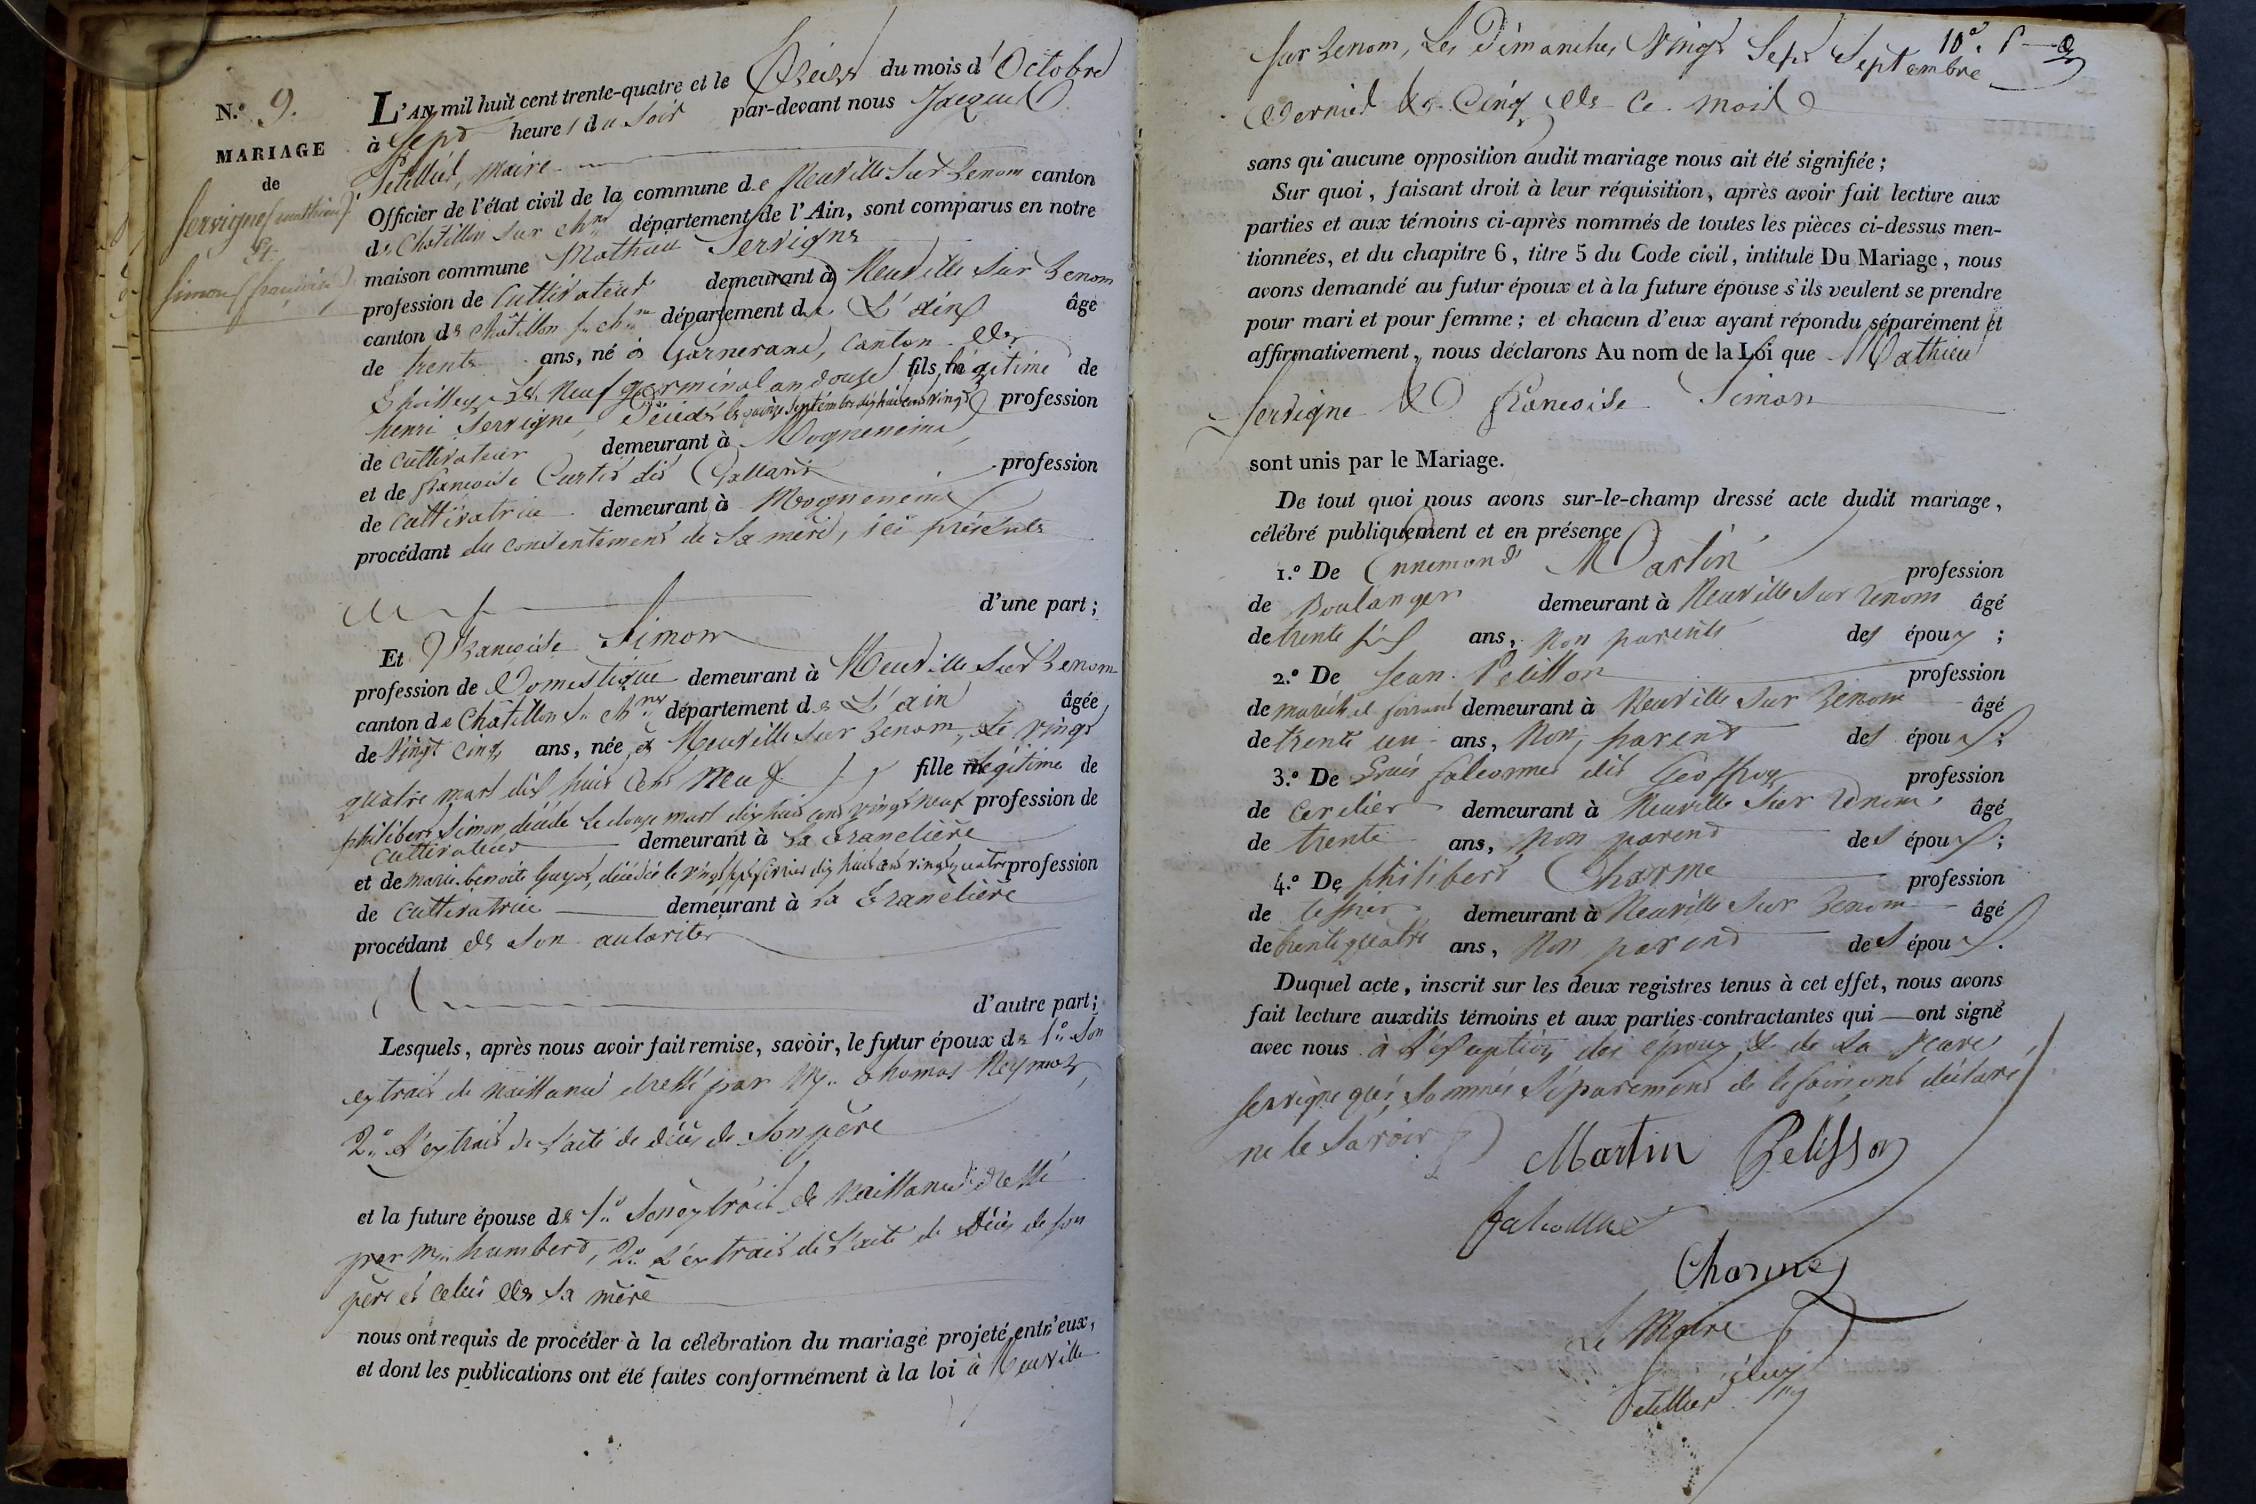 N.o 9.
MARIAGE
de
Servigne (mathieu)
Et
Simon (françoise)
L'AN mil huit cent trente-quatre et le Treize du mois d'Octobre
à Sept heures du Soir par-devant nous Jacques
Petellier, maire
Officier de l'état civil de la commune de Neuville Sur Renom canton
de Chatillon Sur Ch.ne département de l'Ain, sont comparus en notre
maison commune Mathieu Servigne
profession de Cultivateur demeurant à Neuville Sur Renom
canton de Châtillon S. Ch.ne département de L'ain âgé
de trente ans, né à Garnerand, canton de
Thoissey, Le Neuf germinal an douze fils légitime de
henri Servigne, Décédé le quinze Septembre dix huit cent vingt profession
de Cultivateur demeurant à Mogneneins,
et de françoise Curtis dit Galland profession
de Cultivatrice demeurant à Mogneneins
procédant du Consentement de Sa mère, ici présente
d'une part;
Et Françoise Simon
profession de Domestique demeurant à Neuville Sur Renom
canton de Châtillon S. Ch.ne département de L'ain âgée
de Vingt Cinq ans, née à Neuville Sur Renom, Le vingt
quatre mars dix huit Cent Neuf fille légitime de
philibert Simon, décédé Le douze mars dix huit cent vingt neuf profession de
Cultivateur demeurant à La Granelière
et de marie benoite Guyot, décédée le vingt février dix huit cent vingt quatre profession
de Cultivatrice demeurant à La Granelière
procédant de Son autorité
d'autre part;
Lesquels, après nous avoir fait remise, savoir, le futur époux de 1.o Son
extrait de naissance dressé par M.r thomas Reymond,
2.o L'extrait de l'acte de décès de Son père
et la future épouse de 1.o Son extrait de Naissance dressé
par M.r humbert, 2.o L'extrait de l'acte de Décès de son
père et celui de Sa mère
nous ont requis de procéder à la célébration du mariage projeté entr'eux,
et dont les publications ont été faites conformément à la loi à Neuville
10.e f
Sur Renom, Les Dimanches Vingt Sept Septembre
Dernier & Cinq de Ce mois
sans qu'aucune opposition audit mariage nous ait été signifiée;
Sur quoi, faisant droit à leur réquisition, après avoir fait lecture aux
parties et aux témoins ci-après nommés de toutes les pièces ci-dessus men-
tionnées, et du chapitre 6, titre 5 du Code civil, intitulé Du Mariage, nous
avons demandé au futur époux et à la future épouse s'ils veulent se prendre
pour mari et pour femme; et chacun d'eux ayant répondu séparément et
affirmativement, nous déclarons Au nom de la Loi que Mathieu
Servigne & Françoise Simon
sont unis par le Mariage.
De tout quoi nous avons sur-le-champ dressé acte dudit mariage,
célébré publiquement et en présence
1.o De Ennemond Martin profession
de Boulanger demeurant à Neuville Sur Renom âgé
de trente six ans, Non parents des époux;
2.o De Jean Pelisson profession
de maréchal ferrant demeurant à Neuville Sur Renom âgé
de trente un ans, Non parent des époux;
3.o De Louis falconnet dit Geoffroy profession
de Cordier demeurant à Neuville Sur Renom âgé
de trente ans, Non parent des époux;
4.o De philibert Charme profession
de demeurant à Neuville Sur Renom âgé
de trente quatre ans, Non parent des époux.
Duquel acte, inscrit sur les deux registres tenus à cet effet, nous avons
fait lecture auxdits témoins et aux parties contractantes qui ont signé
avec nous à L'exception des époux & de La
Servigne qui, Sommés Séparément de le faire, ont déclaré
ne le Savoir
Martin Pelisson
falconnet
Charme
Le Maire
Petellier